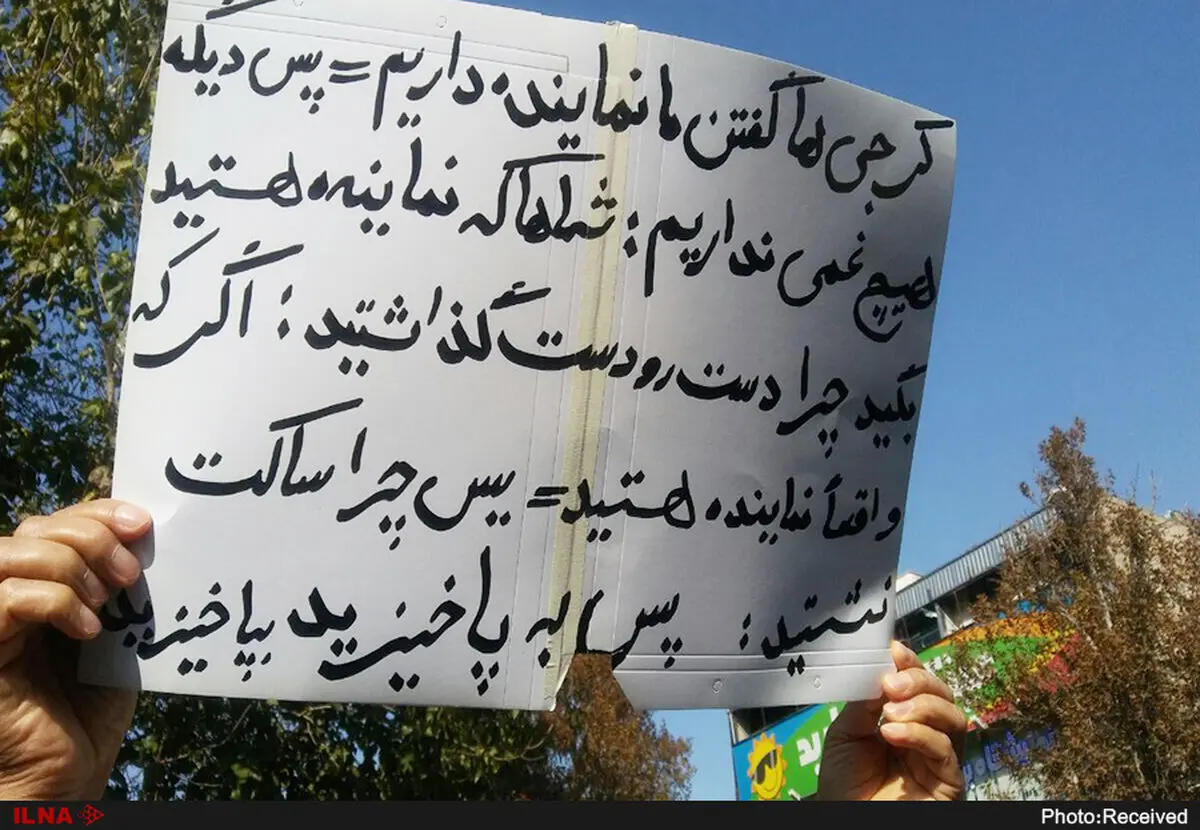 کرجی ها گفتن ما نماینده داریم = پس دیگه
هیچ غمی نداریم : شماها که نماینده هستید
بگید چرا دست رو دست گذاشتید : اگر که
واقعاً نماینده هستید = پس چرا ساکت
نشستید : پس به پاخیزید بپاخیزید
ILNA
Photo:Received